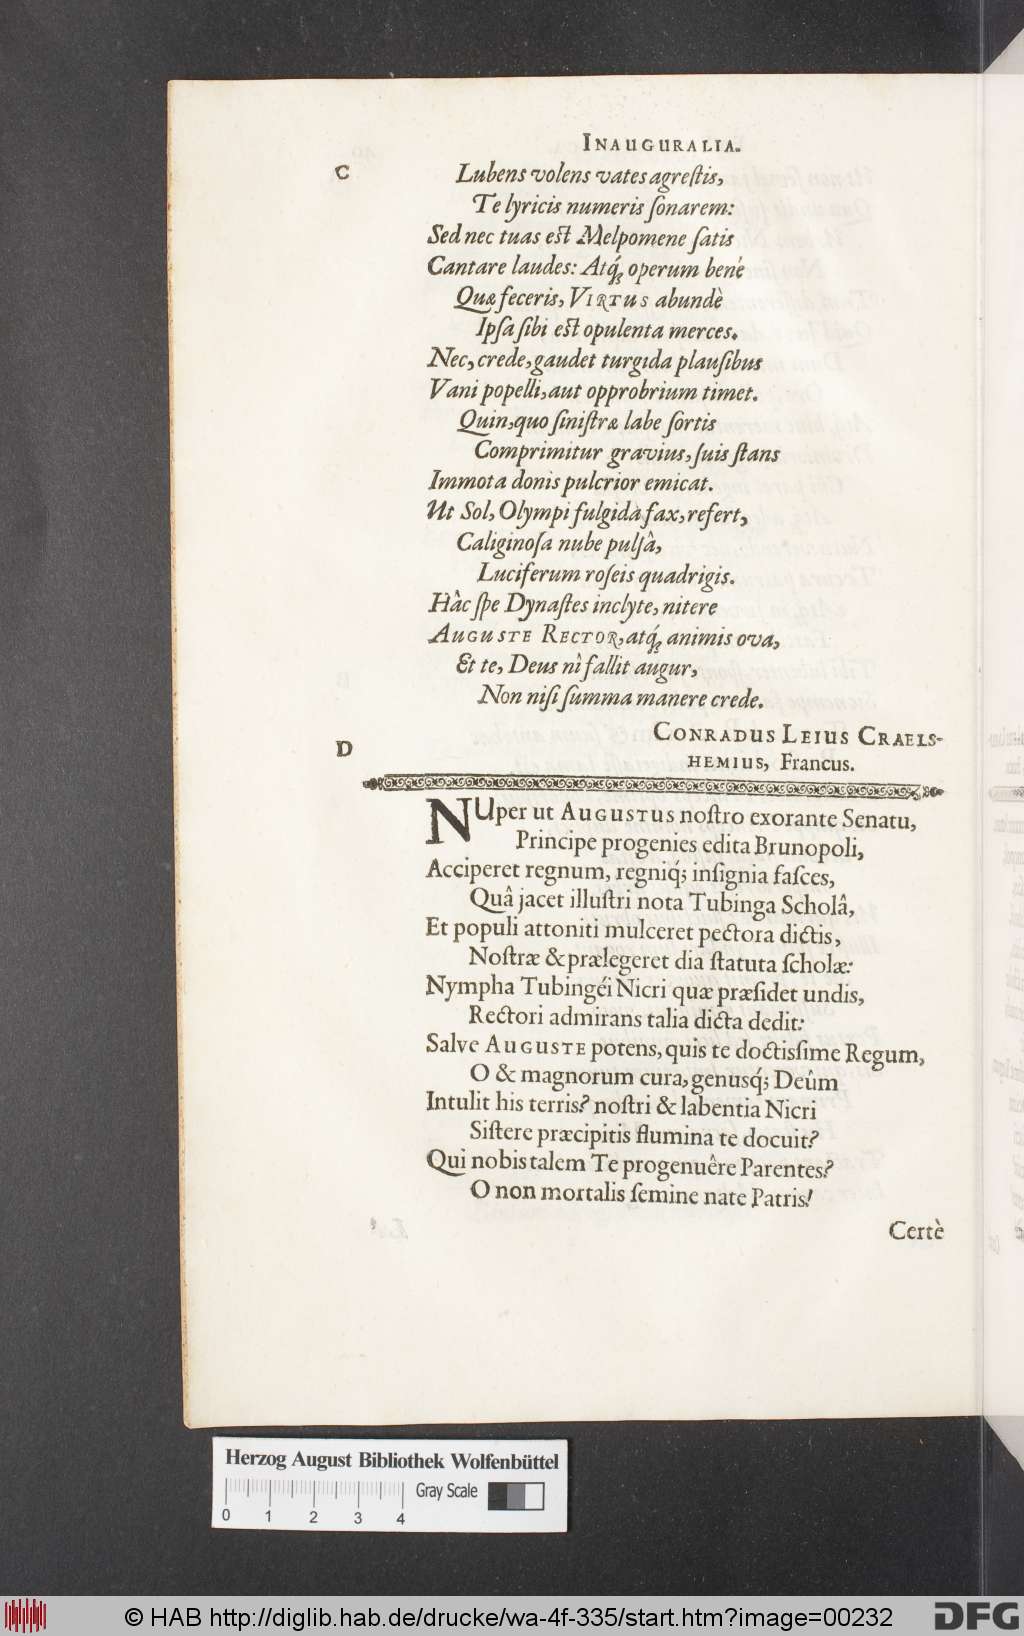 INAUGURALIA.
C
Lubens volens vates agreſtis,
Te lyricis numeris ſonarem:
Sed nec tuas est Melpomene ſatis
Cantare laudes: Atq́; operum bené
Quæ feceris, VIRTUS abundè
Ipſa ſibi est opulenta merces.
Nec, crede, gaudet turgida plauſibus
Vani popelli, aut opprobrium timet.
Quin, quo ſiniſtræ labe ſortis
Comprimitur gravius, ſuis ſtans
Immota donis pulcrior emicat.
Ut Sol, Olympi fulgida fax, refert,
Caliginoſa nube pulſâ,
Luciferum roſeis quadrigis.
Hâc ſpe Dynaſtes inclyte, nitere
AUGUSTE RECTOR, atq́; animis ova,
Et te, Deus nì fallit augur,
Non niſi ſumma manere crede.
CONRADUS LEIUS CRAELS-
HEMIUS, Francus.
D
NUper ut AUGUSTUS noſtro exorante Senatu,
Principe progenies edita Brunopoli,
Acciperet regnum, regniq́; inſignia faſces,
Quâ jacet illuſtri nota Tubinga Scholâ,
Et populi attoniti mulceret pectora dictis,
Noſtræ & prælegeret dia ſtatuta ſcholæ:
Nympha Tubingéi Nicri quæ præſidet undis,
Rectori admirans talia dicta dedit:
Salve AUGUSTE potens, quis te doctiſſime Regum,
O & magnorum cura, genusq́; Deûm
Intulit his terris? noſtri & labentia Nicri
Siſtere præcipitis flumina te docuit?
Qui nobis talem Te progenuêre Parentes?
O non mortalis ſemine nate Patris!
Certè
Herzog August Bibliothek Wolfenbüttel
Gray Scale
0 1 2 3 4
© HAB http://diglib.hab.de/drucke/wa-4f-335/start.htm?image=00232
DFG